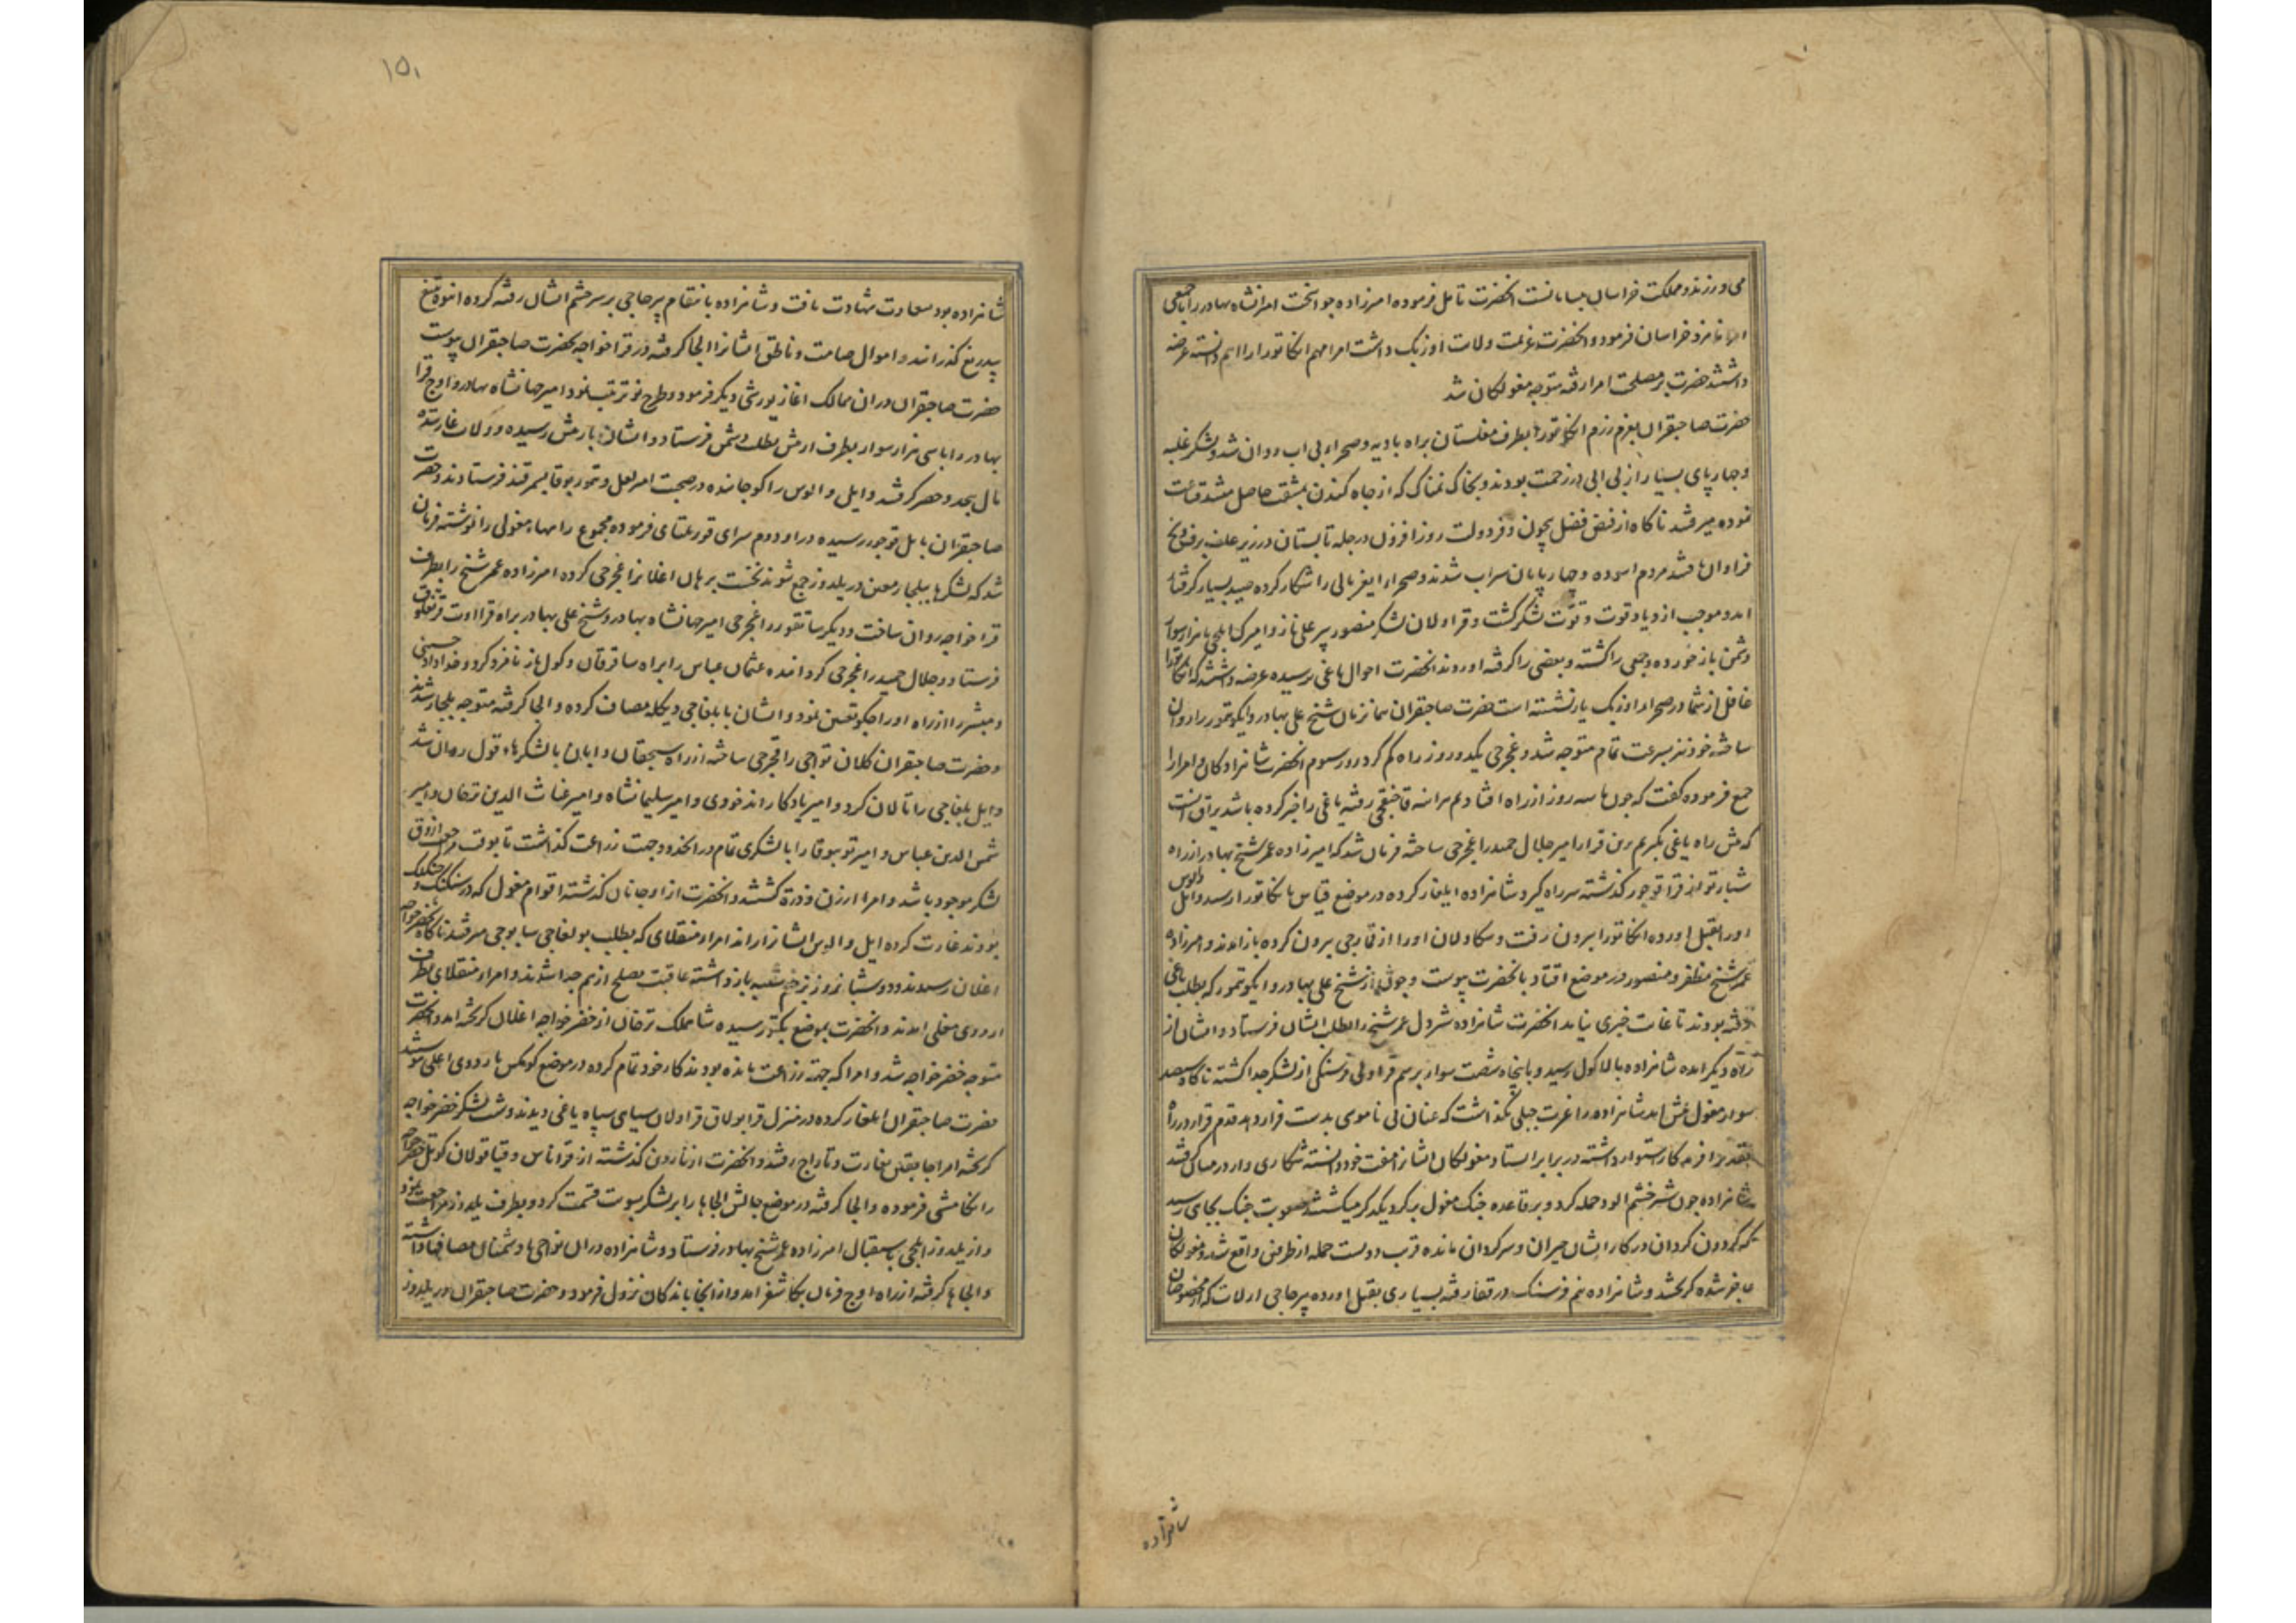 می‌ورزند و مملکت خراسان بسامانست انحضرت تامل فرموده امیرزاده جوانبخت امیرانشاه بهادر را با جمعی
امرا نامزد خراسان فرمود و انحضرت عزیمت ولات اوزبک داشت امرا مهم انکاتورا را اهم دانسته عرضه
داشتند حضرت بر مصلحت امرا رفته متوجه مغولکان شد
حضرت صاحبقران بعزم رزم انکاتورا بطرف مغلستان براه بادیه و صحراء بی اب روان شد و لشکر غلبه
و چهارپای بسیار از بی ابی در زحمت بودند و بخاک نمناک که از چاه کندن بمشقت حاصل میشد قناعت
نموده میرفتند ناکاه از فیض فضل بیچون و فر دولت روزافزون در جله تابستان در زیر علف برف و یخ
فراوان یافتند مردم اسوده و چهارپایان سیراب شدند و صحراء ایغریالی را شکار کرده صید بسیار کرفتار
امد و موجب ازدیاد قوت و قوّت لشکر کشت و قراولان لشکر منصور پیر علی تاز و امیر کا ایلچی با هزار سوار
دشمن باز خورده و جمعی را کشته و بعضی را کرفته اوردند انحضرت احوال یاغی پرسیده عرضه داشتند که انکاتورا
غافل از شما در صحراء اوزنک یار نشسته است حضرت صاحبقران همان زمان شیخ علی بهادر و ایکو تمور را روان
ساخته خود نیز بسرعت تمام متوجه شد و غجرجی یکدو روز راه کم کرد روز سیوم انحضرت شاهزادکان و امرا را
جمع فرموده کفت که چون ما سه روز از راه افتادیم هراینه قاچنقجی رفته یاغی را خبر کرده باشد یراق انست
که پیش راه یاغی بکیریم برین قرار امیر جلال حمید را غجرجی ساخته فرمان شد که امیرزاده عمر شیخ بهادر از راه
شبارتو از قرا قوجور کذشته سر راه کیرد شاهزاده ایلغار کرده در موضع قیاس بانکاتورا رسید و ایل والوس
او را بقتل اورده انکاتورا بیرون رفت و یکاولان او را از قارجی بیرون کرده باز امدند و امیرزاده
عمر شیخ مظفر و منصور در موضع اقتاد بانحضرت پیوست و چون از شیخ علی بهادر و ایکو تمور که بطلب یاغی
رفته بودند تا غایت خبری نیامد انحضرت شاهزاده شیردل عمر شیخ را بطلب ایشان فرستاد و ایشان از
راه دیکر امده شاهزاده بالاکول رسید و با پنجاه شصت سوار برسم قراولی فرسنکی از لشکر جدا کشته ناکاه سیصد
سوار مغول پیش امد شاهزاده را غیرت جبلی نکذاشت که عنان نی ناموسی بدست فرار دهد قدم قرار در راه
بتقدیر افریدکار استوار داشته در برابر ایستاد و مغولکان ایشانرا مفت خود دانسته شکاری وار در میان کرفتند
شاهزاده چون شیر خشم الود حمله کرد و بر قاعده جنک مغول بر کرد یکدکر میکشتند و صعوبت جنک بجای رسید
که کردون کردان در کار ایشان حیران و سرکردان مانده قریب دویست حمله از طرفین واقع شد و مغولکان
عاجز شده کریختند و شاهزاده نیم فرسنک در قفا رفته بسیاری بقتل اورده پیر حاجی ارلات که از مخصوصان
شاهزاده
۱۵۱
شاهزاده بود بسعادت شهادت یافت و شاهزاده بانتقام پیر حاجی بر سر حشم ایشان رفته کرده انبوه تیغ
بیدریغ کذرانید و اموال صامت و ناطق ایشانرا الجا کرفته در قرا خواجه بحضرت صاحبقران پیوست
حضرت صاحبقران دران ممالک اغاز یورشی دیکر فرمود و طرح نو ترتیب نمود امیر جهانشاه بهادر و اوج قرا
بهادر را با سی هزار سوار بطرف ارتش بطلب دشمن فرستاد و ایشان بارتش رسیده و ولات غارتیده
مال بیحد و حصر کرفتند و ایل و الوس را کوچانیده در صحبت امیر لعل و تمور بوقا بسمرقند فرستادند و حضرت
صاحبقران بایل قوجور رسیده در اوردوم سرای قوریلتای فرموده مجموع راههاء مغولی را نوشته فرمان
شد که لشکرها ببلجار معین در یلدوز جمع شوند نخست برهان اغلانرا غجرجی کرده امیرزاده عمر شیخ را بطرف
قرا خواجه روان ساخت و دیکر ساتقو را غجرجی امیر جهانشاه بهادر و شیخ علی بهادر براه قرا اوت
فرستاد و جلال حمید را غجرجی کردانیده عثمان عباس را براه ساقرقان و کول یاز نامزد کرد و خداداد حسینی
و مبشر را از راه اوراجکو تعیین نمود و ایشان با بلغاجی و یکله مصاف کرده و الجا کرفته متوجه بلجار شدند
و حضرت صاحبقران کلان تواجی را قجرجی ساخته از راه سیچقان دابان با لشکرهاء قول روان شد
و ایل بلغاجی را تالان کرد و امیر یادکار اندخودی و امیر سلیمانشاه و امیر غیاث الدین ترخان و امیر
شمس الدین عباس و امیر توبوقا را با لشکری تمام در انحدود جهت زراعت کذاشت تا بوقت مراجعت ازوق
لشکر موجود باشد و امرا ارزن و ذرة کشتند و انحضرت از اوجانان کذشته اقوام مغول که در
بودند غارت کرده ایل و الوس ایشانرا راند امراء منقلای که بطلب بولغاجی سابوجی میرفتند ناکاه بخضر خواجه
اغلان رسیدند و دو شبانروز بزخم شیبه باز داشته عاقبت بصلح از هم جدا شدند و امراء منقلای بطرف
اردوی معلی امدند و انحضرت بموضع بکتور رسیده شاهملک ترخان از خضر خواجه اغلان کریخته امد و انحضرت
متوجه خضر خواجه شد و امرا که جهة زراعت مانده بودند کار خود تمام کرده در موضع کونکس باردوی اعلی پیوستند
حضرت صاحبقران ایلغار کرده در منزل قرا بولاق قراولان سیاهی سپاه یاغی دیدند و شب لشکر خضر خواجه
کریخته امرا جابقلق بغارت و تاراج رفتند و انحضرت از نارون کذشته از قرانیاس و قیاقولان کوتل خضر خواجه
را نکامشی فرموده و الجا کرفته در موضع جالش الجاها را بر لشکر بسویت قسمت کرد و بطرف یلدوز مراجعت نمود
و از یلدوز ایلچی باستقبال امیرزاده عمر شیخ بهادر فرستاد و شاهزاده دران نواحی با دشمنان مصافها داشته
و الجاها کرفته از راه اوج فرمان بکاشغر امد و از انجا باندکان نزول فرمود و حضرت صاحبقران در یلدوز